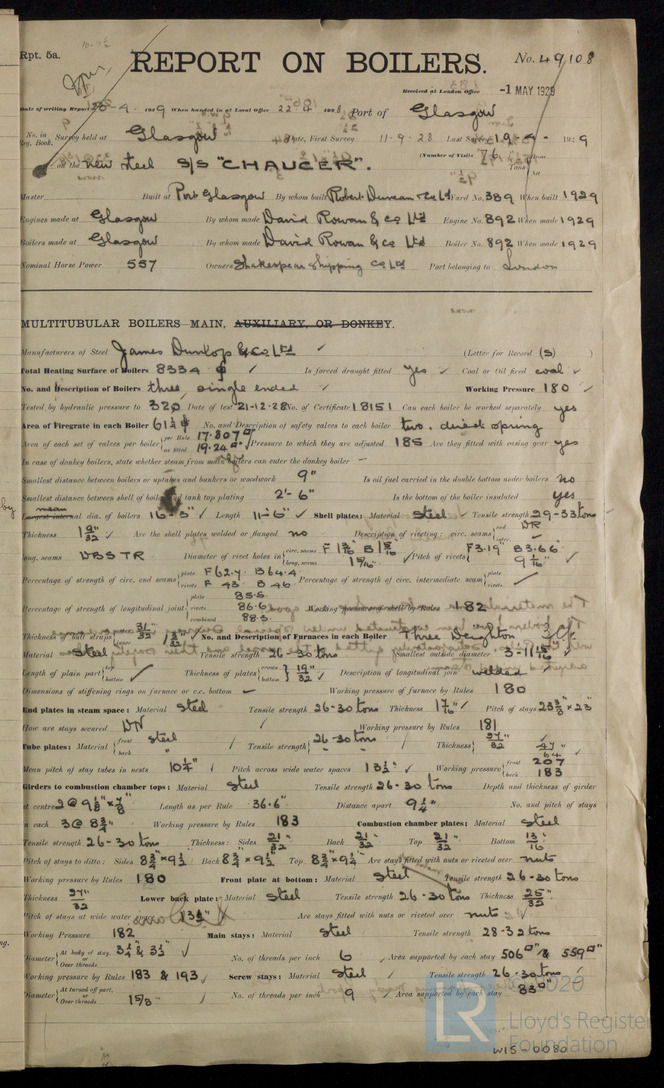 Rpt. 5a.
REPORT ON BOILERS.
No. 49108
Received at London Office -1 MAY 1929
Date of writing Report 20-4-1929 When handed in at Local Office 22.4.1929 Port of Glasgow
No. in Reg. Book. Survey held at Glasgow Date, First Survey 11-9-28 Last Survey 19-4-1929
(Number of Visits 76
on the new steel S/S "CHAUCER".
Tons
Master Built at Port Glasgow By whom built Robert Duncan & Co Ltd Yard No. 389 When built 1929
Engines made at Glasgow By whom made David Rowan & Co Ltd Engine No. 892 When made 1929
Boilers made at Glasgow By whom made David Rowan & Co Ltd Boiler No. 892 When made 1929
Nominal Horse Power 557 Owners Shakespear Shipping Co Ltd Port belonging to London
MULTITUBULAR BOILERS MAIN, AUXILIARY, OR DONKEY.
Manufacturers of Steel James Dunlop & Co Ltd (Letter for Record (S) )
Total Heating Surface of Boilers 8334 Is forced draught fitted yes Coal or Oil fired coal
No. and Description of Boilers three single ended Working Pressure 180
Tested by hydraulic pressure to 320 Date of test 21-12-28 No. of Certificate 18151 Can each boiler be worked separately yes
Area of Firegrate in each Boiler 61¼ No. and Description of safety valves to each boiler two. direct spring
Area of each set of valves per boiler per Rule 17.807 as fitted 19.24 Pressure to which they are adjusted 185 Are they fitted with easing gear yes
In case of donkey boilers, state whether steam from main boilers can enter the donkey boiler –
Smallest distance between boilers or uptakes and bunkers or woodwork 9" Is oil fuel carried in the double bottom under boilers no
Smallest distance between shell of boiler and tank top plating 2'-6" Is the bottom of the boiler insulated yes
Largest internal dia. of boilers 16-3" Length 11-6" Shell plates: Material Steel Tensile strength 29-33 tons
Thickness 1 9/32 Are the shell plates welded or flanged no Description of riveting: circ. seams DR
long. seams DBSTR Diameter of rivet holes in circ. seams F 1 3/16 B 1 5/16 long. seams 1 5/16 Pitch of rivets F 3.19 B 3.66 9 1/16"
Percentage of strength of circ. end seams plate F 62.7 B 64.4 rivets F 43 B 46 Percentage of strength of circ. intermediate seam plate rivets
Percentage of strength of longitudinal joint plate 85.5 rivets 86.6 combined 88.3 Working pressure of shell by Rules 182
Thickness of butt straps 31/32 1 3/32 No. and Description of Furnaces in each Boiler Three Deighton
Material Steel Tensile strength 26-30 tons Smallest outside diameter 3-11 5/16
Length of plain part top bottom Thickness of plates crown bottom 19/32 Description of longitudinal join welded
Dimensions of stiffening rings on furnace or c.c. bottom Working pressure of furnace by Rules 180
End plates in steam space: Material Steel Tensile strength 26-30 tons Thickness 1 7/16 Pitch of stays 23⅜" × 23"
How are stays secured DN Working pressure by Rules 181
Tube plates: Material front Steel back " Tensile strength 26-30 tons " Thickness 27/32 47/64
Mean pitch of stay tubes in nests 10¼" Pitch across wide water spaces 13½ Working pressure front 207 back 183
Girders to combustion chamber tops: Material Steel Tensile strength 26-30 tons Depth and thickness of girder
at centre 2@ 9⅛" × ⅞ Length as per Rule 36.6" Distance apart 9¼" No. and pitch of stays
in each 3@ 8¾" Working pressure by Rules 183 Combustion chamber plates: Material Steel
Tensile strength 26-30 tons Thickness: Sides 21/32 Back 21/32 Top 21/32 Bottom 13/16
Pitch of stays to ditto: Sides 8¾" × 9½ Back 8¾ × 9½ Top 8¾" × 9¼ Are stays fitted with nuts or riveted over nuts
Working pressure by Rules 180 Front plate at bottom: Material Steel Tensile strength 26-30 tons
Thickness 27/32 Lower back plate: Material Steel Tensile strength 26-30 tons Thickness 25/32
Pitch of stays at wide water 13½" Are stays fitted with nuts or riveted over nuts
Working Pressure 182 Main stays: Material Steel Tensile strength 28-32 tons
Diameter At body of stay, or Over threads 3¼ & 3½ No. of threads per inch 6 Area supported by each stay 506 & 559
Working pressure by Rules 183 & 193 Screw stays: Material Steel Tensile strength 26-30 tons
Diameter At turned off part, or Over threads 1⅝ No. of threads per inch 9 Area supported by each stay 83
2020
LR Lloyd's Register Foundation
W15-0080